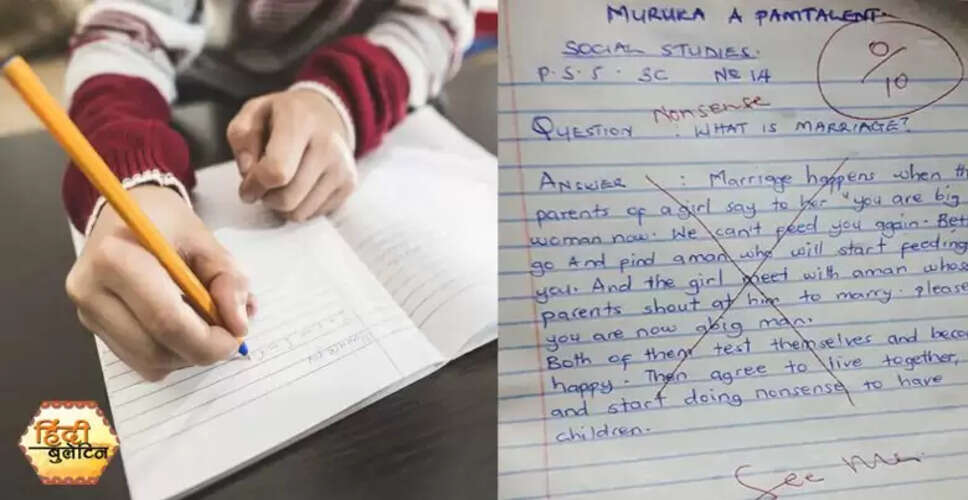 हिंदी
बुलेटिन
MURUKA A PAMTALENT
SOCIAL STUDIES.
P.S.S. SC № 14
0/10
Nonsense
QUESTION : WHAT IS MARRIAGE?
ANSWER : Marriage happens when th
parents of a girl say to her "you are big
woman now. We can't feed you again. Bett
go And find aman who will start feeding
you. And the girl meet with aman whose
parents shout at him to marry. please
you are now abig man.
Both of them test themselves and becom
happy. Then agree to live together,
and start doing nonsense to have
children.
See Me.